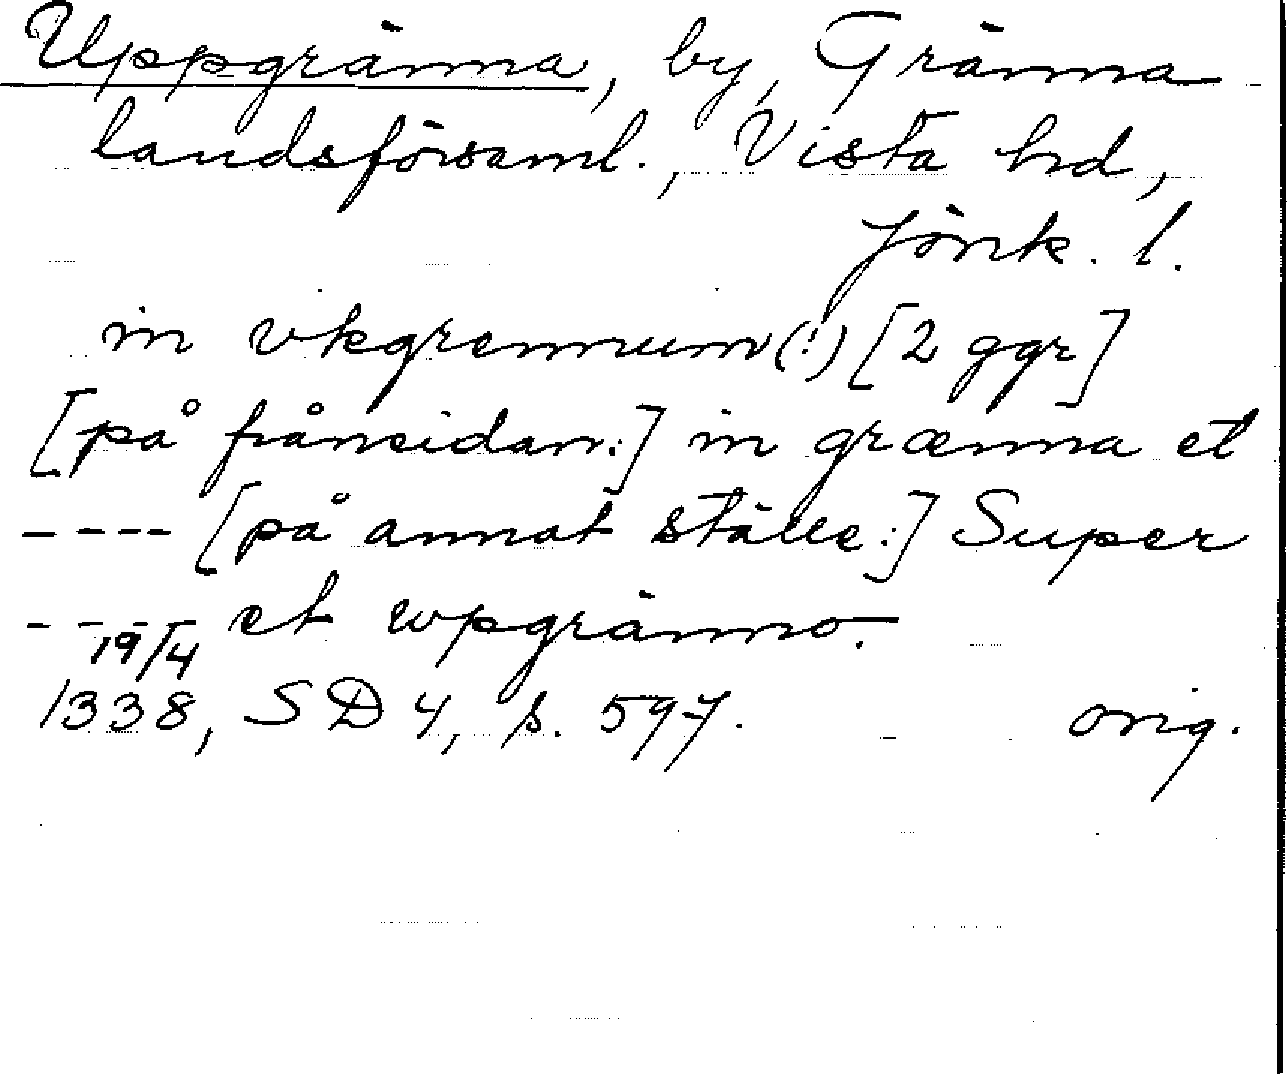 Uppgränna, by, Gränna
landsförsaml., Vista hd,
Jönk. l.
in vkgrennum (!) [2 ggr]
[på frånsidan:] in grænna et
---- [på annat ställe:] Super
---- et wpgränno.
19/4
1338, SD 4, s. 597. orig.